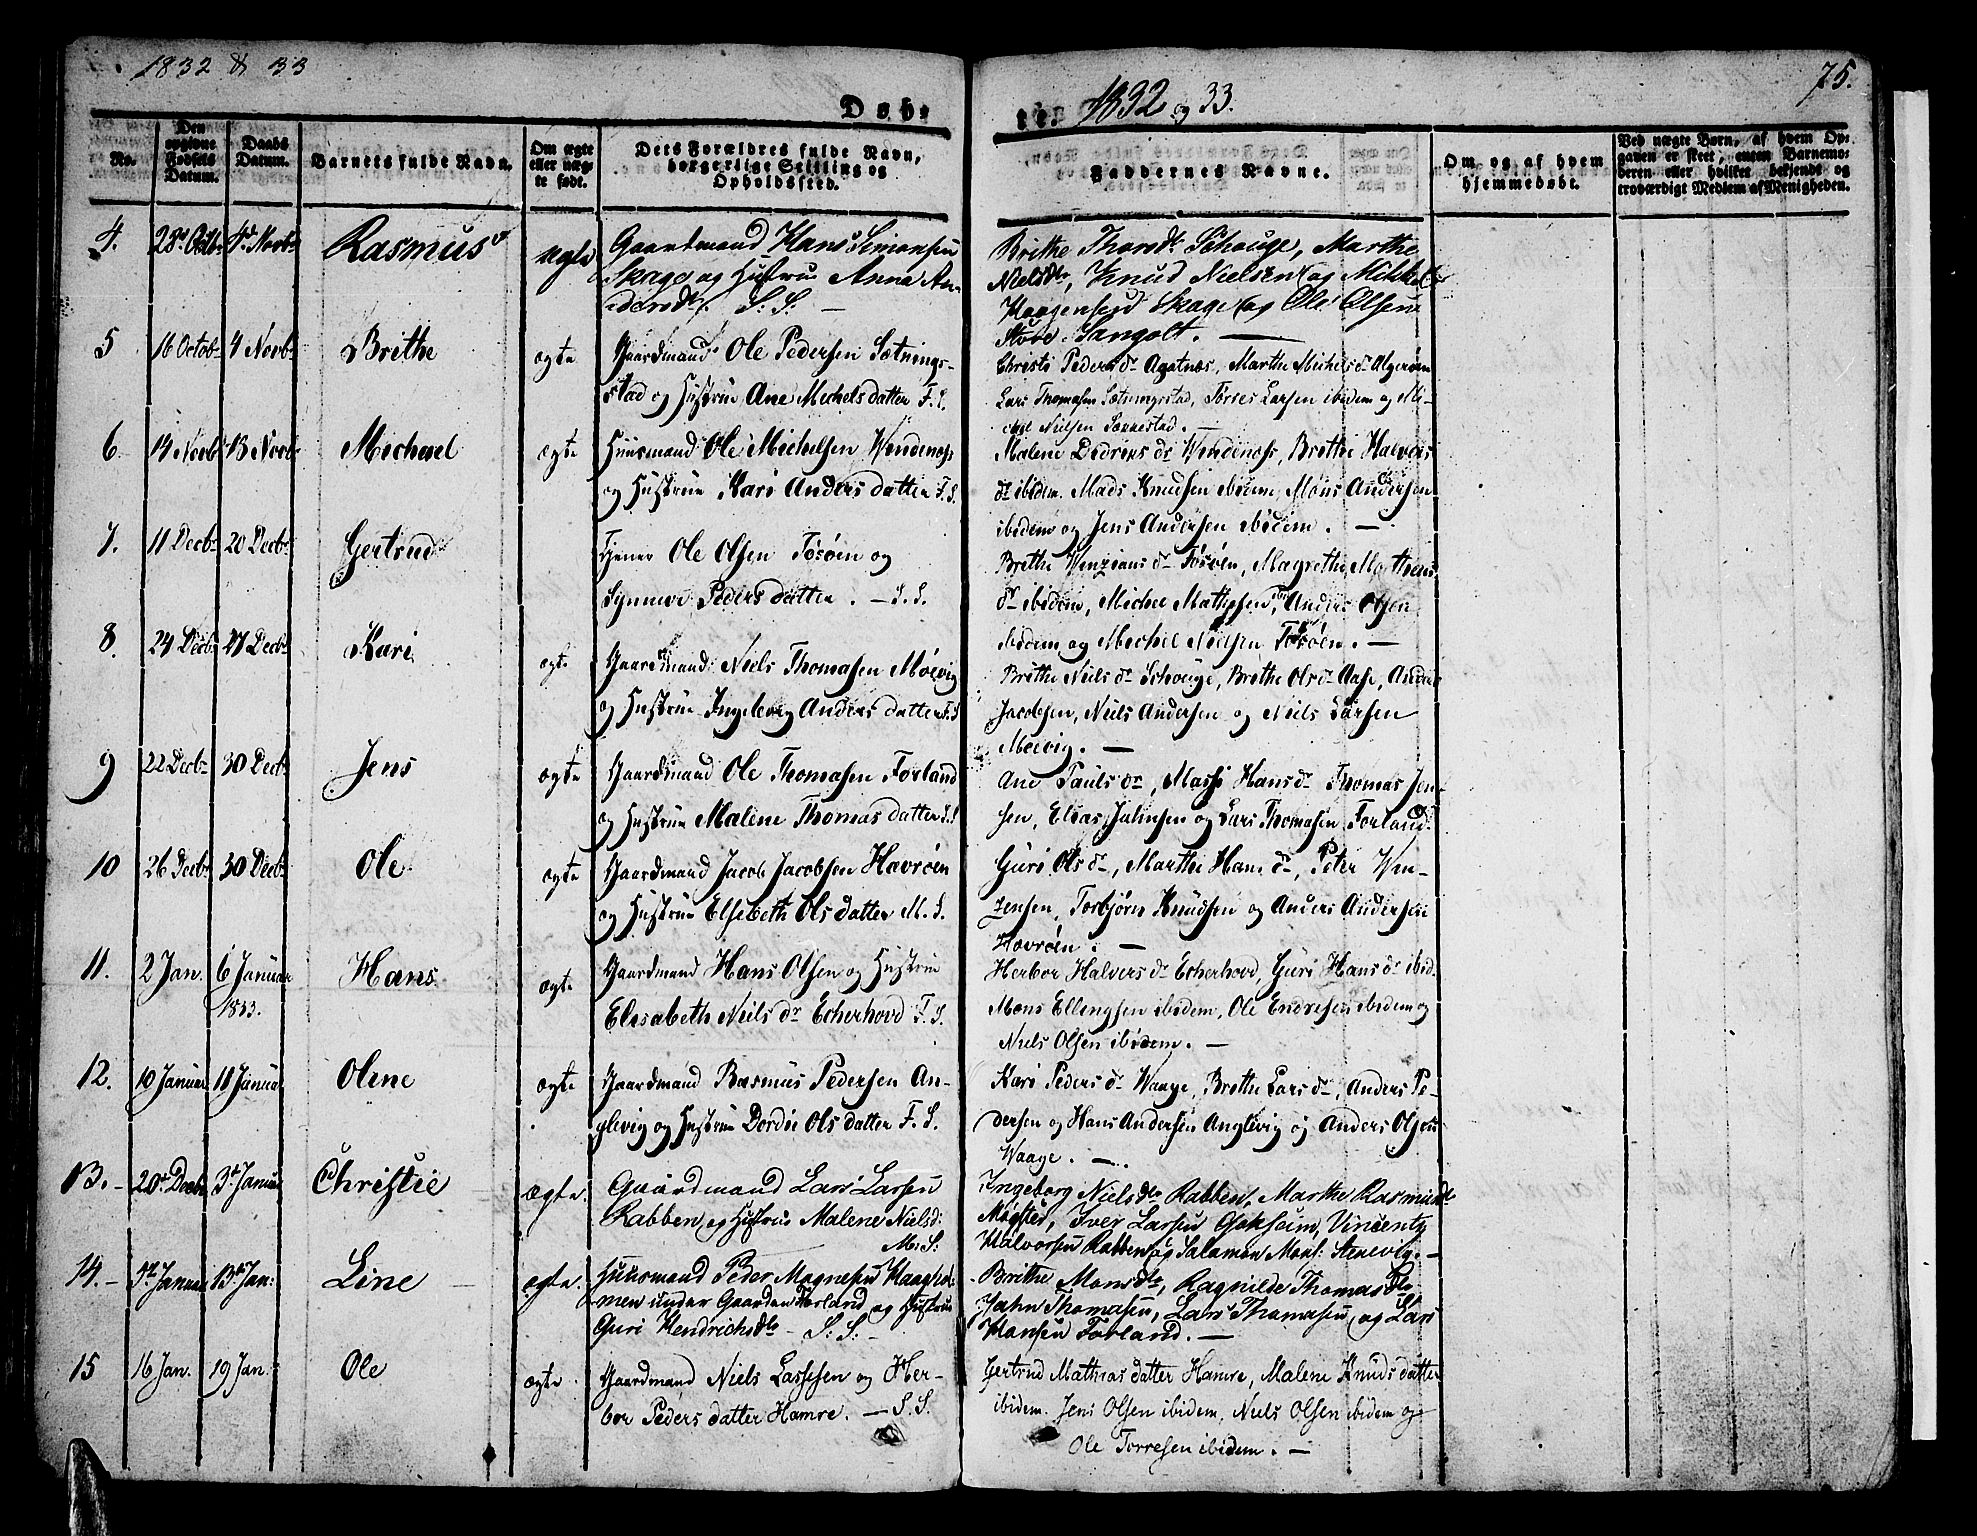 1832 & 33
Døb-
te. 1832 og 33.
75.
No.
Den opgivne Fødsels Datum.
Daabs Datum.
Barnets fulde Navn.
Om ægte eller uægte født.
Dets Forældres fulde Navn, borgerlige Stilling og Opholdssted.
Faddernes Navne.
Om og af hvem hjemmedøbt.
Ved uægte Børn, af hvem Opgaven er skeet, enten Barnemoderen eller hvilket bekjendt og troværdigt Medlem af Menigheden.
4. 28d Octbr 4d Novbr Rasmus ægte Gaardmand Hans Simonsen
Skage og Hustrue Anna An-
dersdtr. S: S: —
Brithe Thordr Schouge, Marthe
Nielsdtr, Knud Nielsen og Mikkel
Haagensen Skage og Ole Olsen
Store Sangolt. —
5 16 Octob 4 Novbr Brithe ægte Gaardmand Ole Pedersen Sætnings-
stad og Hustrue Ane Mechelsdatter F. S.
Christi Pedersdr Agatnæs, Marthe Michelsdr Algerøen
Lars Thomasen Sætningstad, Torres Larsen ibidem og Mi-
chel Nielsen Sækkestad. —
6 14 Novbr 18 Novbr Mechael ægte Huusmand Ole Michelsen Wendenæss
og Hustrue Kari Andersdatter F. S.
Malene Didriksdr Wendenæss, Brithe Halvors
dr ibidem. Mads Knudsen ibidem, Mons Andersen
ibidem og Jens Andersen ibidem. —
7. 11 Decbr 20 Decbr Gertrud Tjener Ole Olsen Tosøen og
Synneve Pedersdatter. — S. S.
Brithe Venziansdr Tosøen, Magrethe Mathias
dr ibidem, Michel Mathissen ibid, Anders Olsen
ibidem og Mechel Nielsen Tosøen. —
8. 24 Decbr 27 Decbr Kari ægte Gaardmand Niels Thomasen Møevig
og Hustrue Ingeborg Andersdatter F. S.
Brithe Nielsdr Schouge, Brithe Olsdr Aase, Anders
Jacobsen, Niels Andersen og Niels Larsen
Møevig. —
9 22 Decbr 30 Decbr Jens ægte Gaardmand Ole Thomasen Forland
og Hustrue Malene Thomasdatter S. S.
Ane Paulsdr, Massi Hansdr Thomas Jen-
sen, Elias Johnsen og Lars Thomasen Forland.
10 26 Decbr 30 Decbr Ole ægte Gaardmand Jacob Jacobsen Havrøen
og Hustrue Elsebeth Olsdatter M. S.
Guri Olsdr, Marthe Hansdr, Peter Wen-
zensen, Torbjørn Knudsen og Anders Andersen
Havrøen. —
11. 2 Jan. 6 Januar
1833. Hans ægte Gaardmand Hans Olsen og Hustrue
Elisabeth Nielsdr Echerhovd F. S.
Herbor Halversdr Echerhovd, Guri Hansdr ibid.
Mons Ellingsen ibidem, Ole Endresen ibidem og
Niels Olsen ibidem. —
12. 10 Januar 11 Januar Oline ægte Gaardmand Rasmus Pedersen An-
glevig og Hustrue Dordie Olsdatter F. S.
Kari Pedersdr Waage, Brithe Larsdr, Anders Pe-
dersen og Hans Andersen Anglevig og Anders Olsen
Waage. —
13. 20d Decbr 3d Januar Christie ægte. Gaardmand Lars Larsen
Rabben, og Hustrue Malene Nielsd:
M: S:
Ingeborg Nielsdtr Rabben, Marthe Rasmusdtr
Møgster, Iver Larsen Goksøim, Vincentz
Halvorsen Rabben og Salamon Mons: Stenevig. —
14. 5te Januar 13d Jan: Line ægte. Huusmand Peder Magnesen Haaghol-
men under Gaarden Forland og Hustrue
Guri Hendrichsdtr — S: S: —
Brithe Monsdtr, Ragnilde Thomasdtr
John Thomasen, Lars Thomasen, og Lars
Hansen Forland. —
15 16 Jan. 19 Jan. Ole ægte. Gaardmand Niels Lassesen og Her-
bor Pedersdatter Hamre. — S. S.
Gertrud Mathiasdatter Hamre, Malene Knudsdatter
ibidem. Jens Olsen ibidem, Niels Olsen ibidem og
Ole Torresen ibidem. —